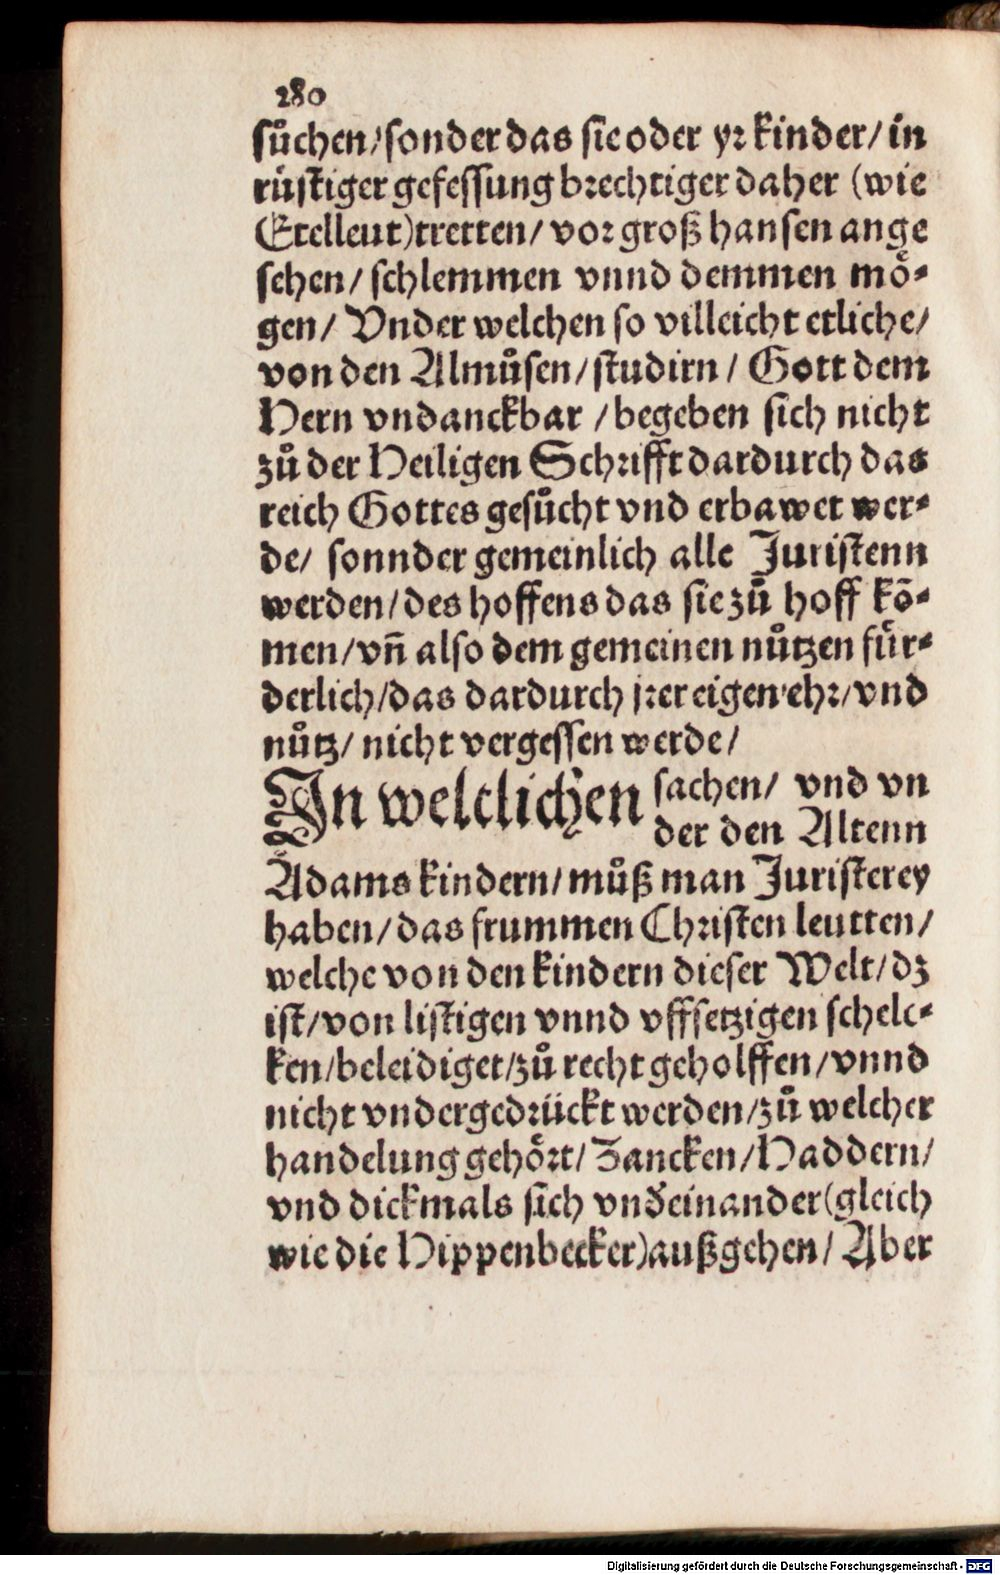 280
sůchen/sonder das sie oder yr kinder/ in
rüstiger gefessung brechtiger daher (wie
Etelleut)tretten/ vor groß hansen ange
sehen/ schlemmen vnnd demmen mö-
gen/ Vnder welchen so villeicht etliche/
von den Almůsen/studirn/ Gott dem
Hern vndanckbar /begeben sich nicht
zů der Heiligen Schrifft dardurch das
reich Gottes gesůcht vnd erbawet wer-
de/ sonnder gemeinlich alle Juristenn
werden/des hoffens das sie zů hoff kō-
men/vñ also dem gemeinen nůtzen für-
derlich/das dardurch jrer eigen ehr/vnd
nůtz/ nicht vergessen werde/
In weltlichen sachen/ vnd vn
der den Altenn
Adams kindern/můß man Juristerey
haben/das frummen Christen leutten/
welche von den kindern dieser Welt/dz
ist/von listigen vnnd vffsetzigen schelc-
ken/beleidiget/zů recht geholffen/vnnd
nicht vndergedrückt werden/zů welcher
handelung gehört/Zancken/Haddern/
vnd dickmals sich vnd̓einander(gleich
wie die Hippenbecker)außgehen/ Aber
Digitalisierung gefördert durch die Deutsche Forschungsgemeinschaft - DFG